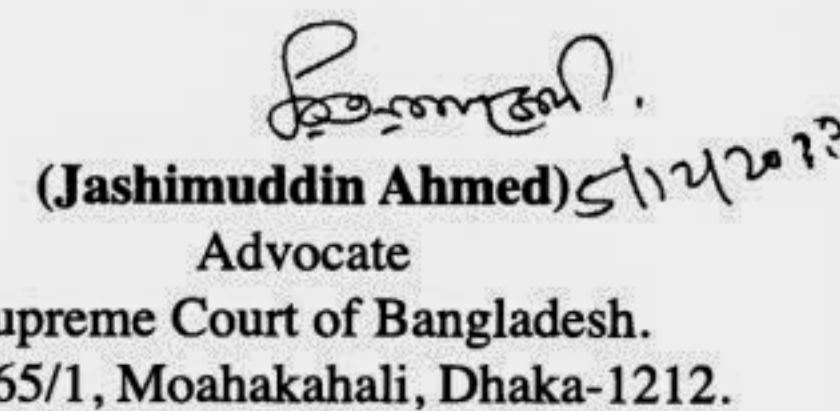 (Jashimuddin Ahmed)
Advocate
upreme Court of Bangladesh.
65/1, Moahakahali, Dhaka-1212.